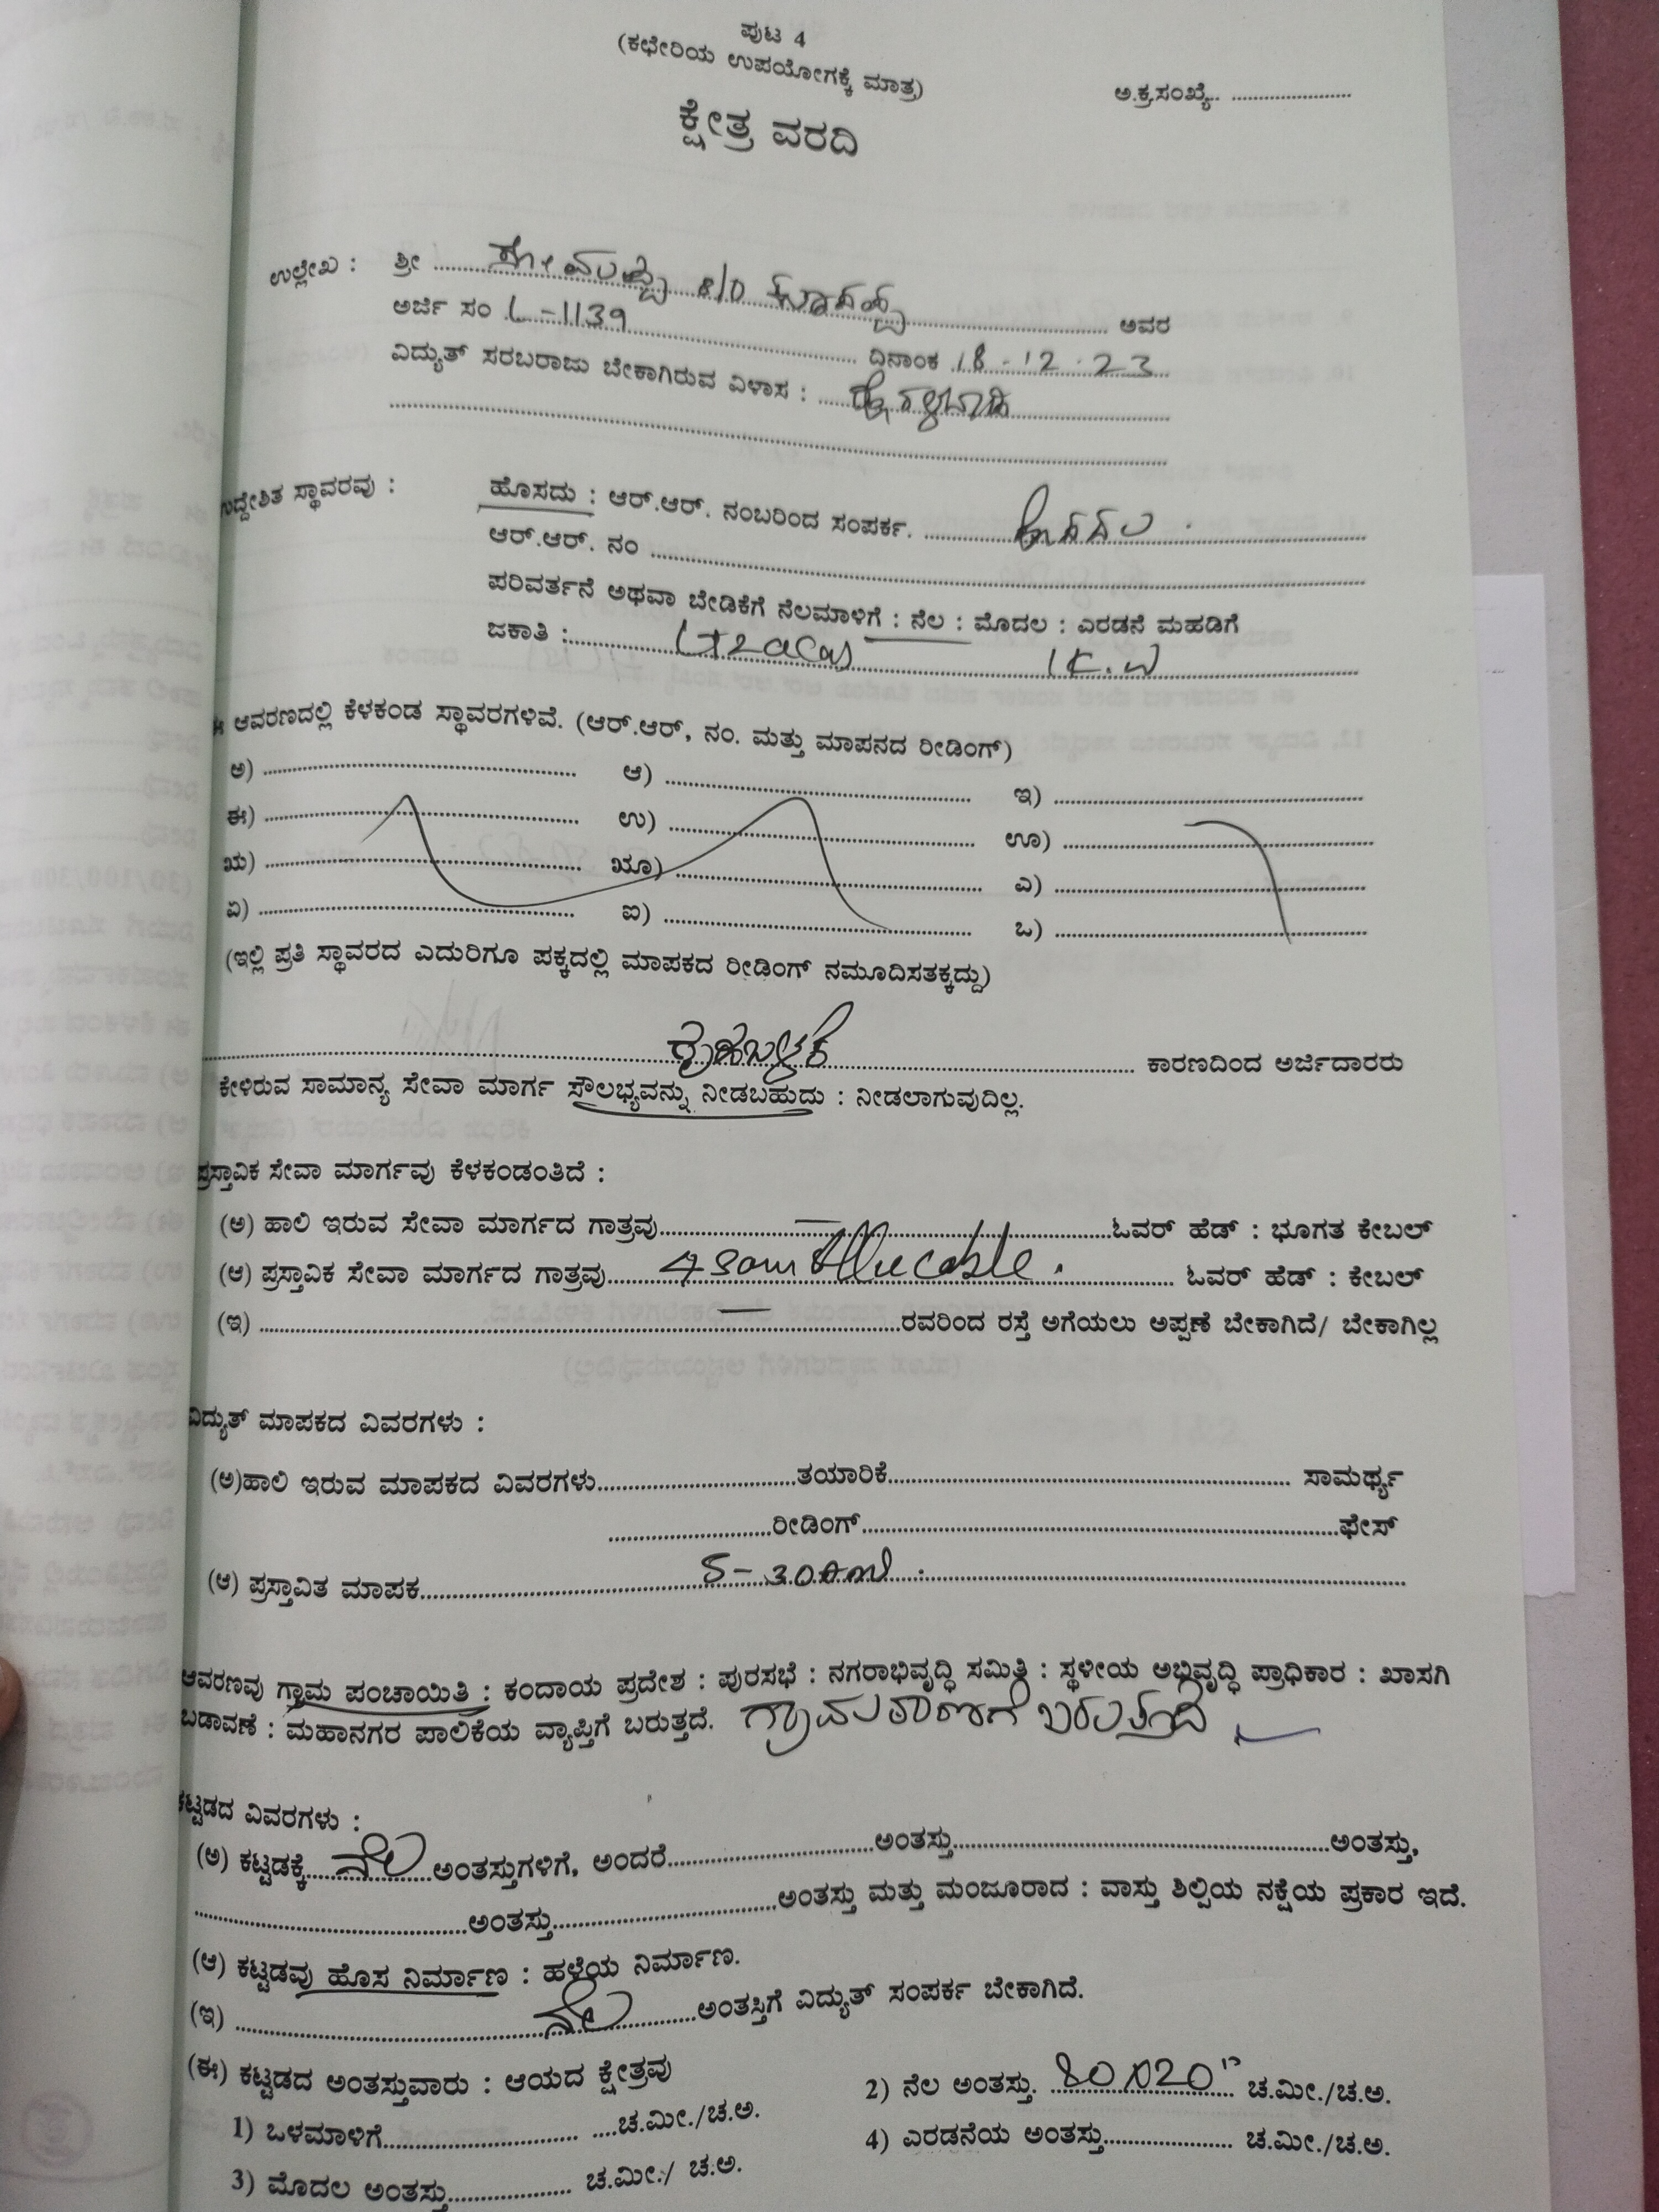 ಪುಟ 4
(ಕಛೇರಿಯ ಉಪಯೋಗಕ್ಕೆ ಮಾತ್ರ)
ಅ.ಕ್ರ.ಸಂಖ್ಯೆ. ....................
ಕ್ಷೇತ್ರ ವರದಿ
ಉಲ್ಲೇಖ : ಶ್ರೀ .................... S/O .................... ಅವರ
ಅರ್ಜಿ ಸಂ L-1139 .................... ದಿನಾಂಕ 18-12-23
ವಿದ್ಯುತ್ ಸರಬರಾಜು ಬೇಕಾಗಿರುವ ವಿಳಾಸ : ....................
ಉದ್ದೇಶಿತ ಸ್ಥಾವರವು : ಹೊಸದು : ಆರ್.ಆರ್. ನಂಬರಿಂದ ಸಂಪರ್ಕ. ....................
ಆರ್.ಆರ್. ನಂ ....................
ಪರಿವರ್ತನೆ ಅಥವಾ ಬೇಡಿಕೆಗೆ ನೆಲಮಾಳಿಗೆ : ನೆಲ : ಮೊದಲ : ಎರಡನೆ ಮಹಡಿಗೆ
ಜಕಾತಿ :.................... 1K.W
ಈ ಆವರಣದಲ್ಲಿ ಕೆಳಕಂಡ ಸ್ಥಾವರಗಳಿವೆ. (ಆರ್.ಆರ್, ನಂ. ಮತ್ತು ಮಾಪನದ ರೀಡಿಂಗ್)
ಅ) .................... ಆ) .................... ಇ) ....................
ಈ) .................... ಉ) .................... ಊ) ....................
ಋ) .................... ೠ) .................... ಎ) ....................
ಏ) .................... ಐ) .................... ಒ) ....................
(ಇಲ್ಲಿ ಪ್ರತಿ ಸ್ಥಾವರದ ಎದುರಿಗೂ ಪಕ್ಕದಲ್ಲಿ ಮಾಪಕದ ರೀಡಿಂಗ್ ನಮೂದಿಸತಕ್ಕದ್ದು)
.................... ಗೃಹಬಳಕೆ .................... ಕಾರಣದಿಂದ ಅರ್ಜಿದಾರರು
ಕೇಳಿರುವ ಸಾಮಾನ್ಯ ಸೇವಾ ಮಾರ್ಗ ಸೌಲಭ್ಯವನ್ನು ನೀಡಬಹುದು : ನೀಡಲಾಗುವುದಿಲ್ಲ.
ಪ್ರಸ್ತಾವಿಕ ಸೇವಾ ಮಾರ್ಗವು ಕೆಳಕಂಡಂತಿದೆ :
(ಅ) ಹಾಲಿ ಇರುವ ಸೇವಾ ಮಾರ್ಗದ ಗಾತ್ರವು.......... — ..........ಓವರ್ ಹೆಡ್ : ಭೂಗತ ಕೇಬಲ್
(ಆ) ಪ್ರಸ್ತಾವಿಕ ಸೇವಾ ಮಾರ್ಗದ ಗಾತ್ರವು.......... cable. .......... ಓವರ್ ಹೆಡ್ : ಕೇಬಲ್
(ಇ) .......... — ..........ರವರಿಂದ ರಸ್ತೆ ಅಗೆಯಲು ಅಪ್ಪಣೆ ಬೇಕಾಗಿದೆ/ ಬೇಕಾಗಿಲ್ಲ
ವಿದ್ಯುತ್ ಮಾಪಕದ ವಿವರಗಳು :
(ಅ)ಹಾಲಿ ಇರುವ ಮಾಪಕದ ವಿವರಗಳು....................ತಯಾರಿಕೆ.................... ಸಾಮರ್ಥ್ಯ
....................ರೀಡಿಂಗ್....................ಫೇಸ್
(ಆ) ಪ್ರಸ್ತಾವಿತ ಮಾಪಕ.......... 5-30 ..........
ಆವರಣವು ಗ್ರಾಮ ಪಂಚಾಯಿತಿ : ಕಂದಾಯ ಪ್ರದೇಶ : ಪುರಸಭೆ : ನಗರಾಭಿವೃದ್ಧಿ ಸಮಿತಿ : ಸ್ಥಳೀಯ ಅಭಿವೃದ್ಧಿ ಪ್ರಾಧಿಕಾರ : ಖಾಸಗಿ
ಬಡಾವಣೆ : ಮಹಾನಗರ ಪಾಲಿಕೆಯ ವ್ಯಾಪ್ತಿಗೆ ಬರುತ್ತದೆ. ಗ್ರಾಮಠಾಣಾಗೆ ಬರುತ್ತದೆ
ಕಟ್ಟಡದ ವಿವರಗಳು :
(ಅ) ಕಟ್ಟಡಕ್ಕೆ.....ನೆಲ.....ಅಂತಸ್ತುಗಳಿಗೆ, ಅಂದರೆ....................ಅಂತಸ್ತು....................ಅಂತಸ್ತು,
....................ಅಂತಸ್ತು....................ಅಂತಸ್ತು ಮತ್ತು ಮಂಜೂರಾದ : ವಾಸ್ತು ಶಿಲ್ಪಿಯ ನಕ್ಷೆಯ ಪ್ರಕಾರ ಇದೆ.
(ಆ) ಕಟ್ಟಡವು ಹೊಸ ನಿರ್ಮಾಣ : ಹಳೆಯ ನಿರ್ಮಾಣ.
(ಇ) ....................ನೆಲ..........ಅಂತಸ್ತಿಗೆ ವಿದ್ಯುತ್ ಸಂಪರ್ಕ ಬೇಕಾಗಿದೆ.
(ಈ) ಕಟ್ಟಡದ ಅಂತಸ್ತುವಾರು : ಆಯದ ಕ್ಷೇತ್ರವು
1) ಒಳಮಾಳಿಗೆ.................... ....ಚ.ಮೀ./ಚ.ಅ. 2) ನೆಲ ಅಂತಸ್ತು. .................... ಚ.ಮೀ./ಚ.ಅ.
3) ಮೊದಲ ಅಂತಸ್ತು.................... ಚ.ಮೀ./ ಚ.ಅ. 4) ಎರಡನೆಯ ಅಂತಸ್ತು.................... ಚ.ಮೀ./ಚ.ಅ.